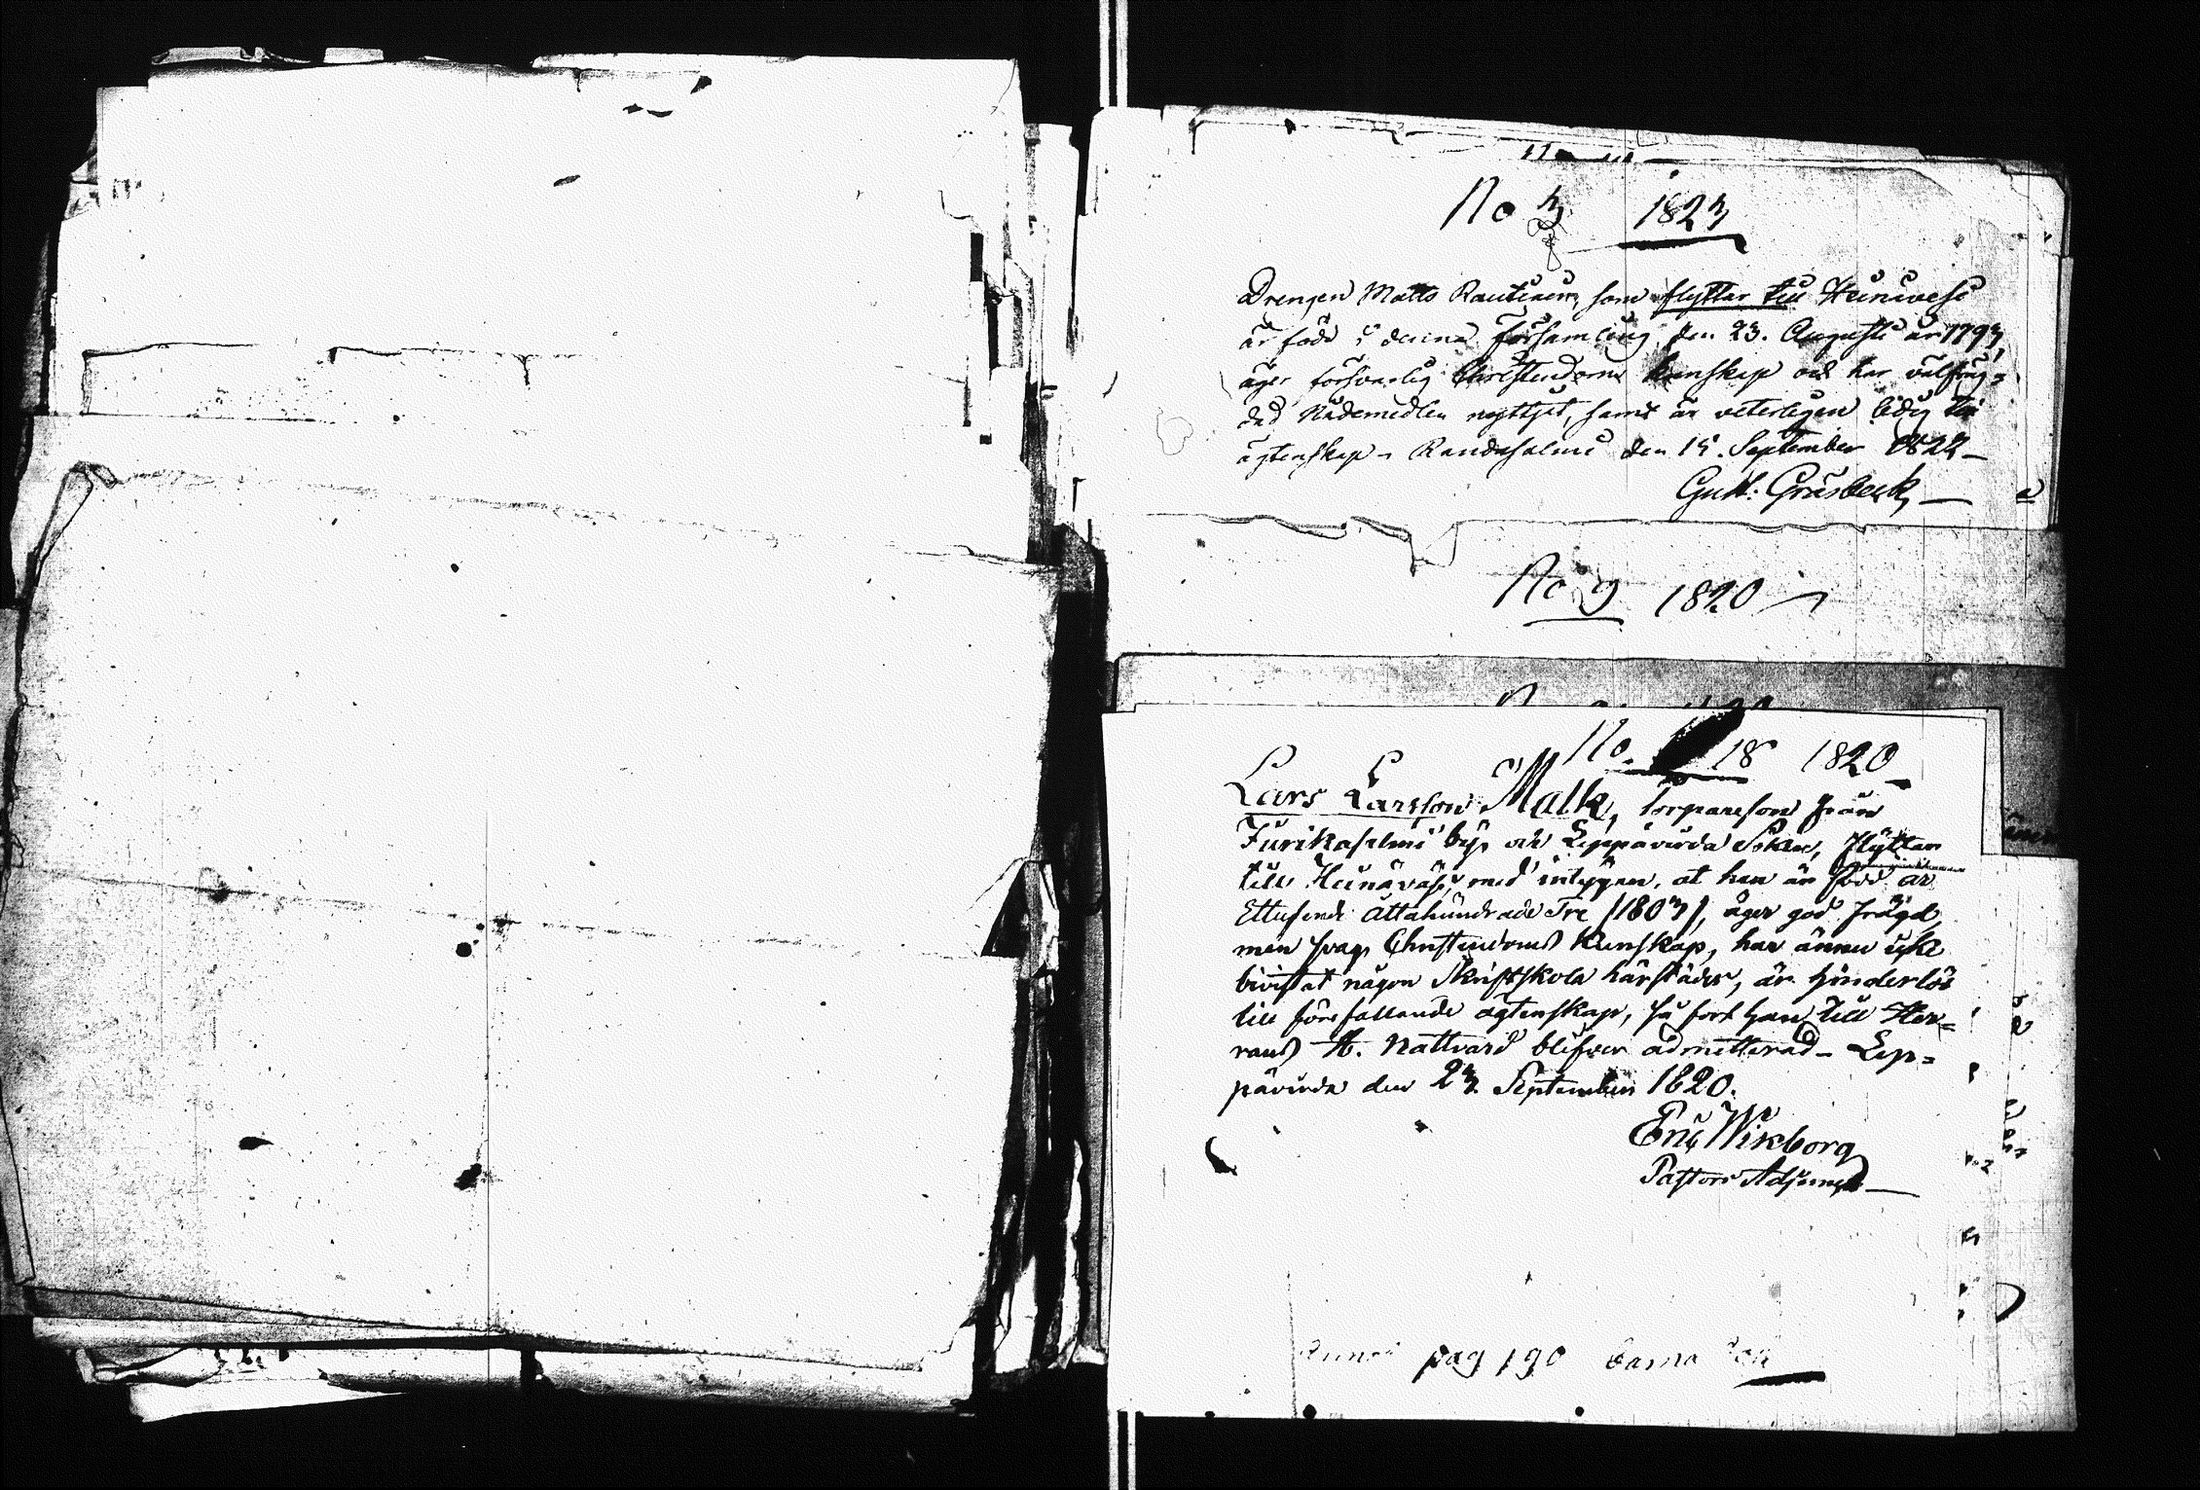 No 3 1823
Drengen Matts Rautiain, som flyttar till Heinävesi
är född i denna församling den 23. Augusti år 1793,
äger försvarlig Christendoms kunskap och har välfräg=
dad Nådemedlen nyttjat, samt är veterligen ledig till
ägtenskap. Randasalmi den 15. September 1822
Gust: Gräsbeck
No 9 1820
No. 18 1820
Lars Larsson Malk, torpareson från
Jurikasalmi by och Leppävirda Sokn, flyttar
till Heinäväsi, med intygan, at han är född år
Ettusende åttahundrade Tre (1803), äger god frägd
men svag Christendoms Kunskap, har ännu icke
bivistat någon Skriftskola härstädes, är hinderlös
till förefallande ägtenskap, så fort han till Her=
rans H. Nattvard blifver admitterad. Lep=
pävirda den 23 September 1820.
Eric Wikborg
Pastors Adjunct
pag 190 barna